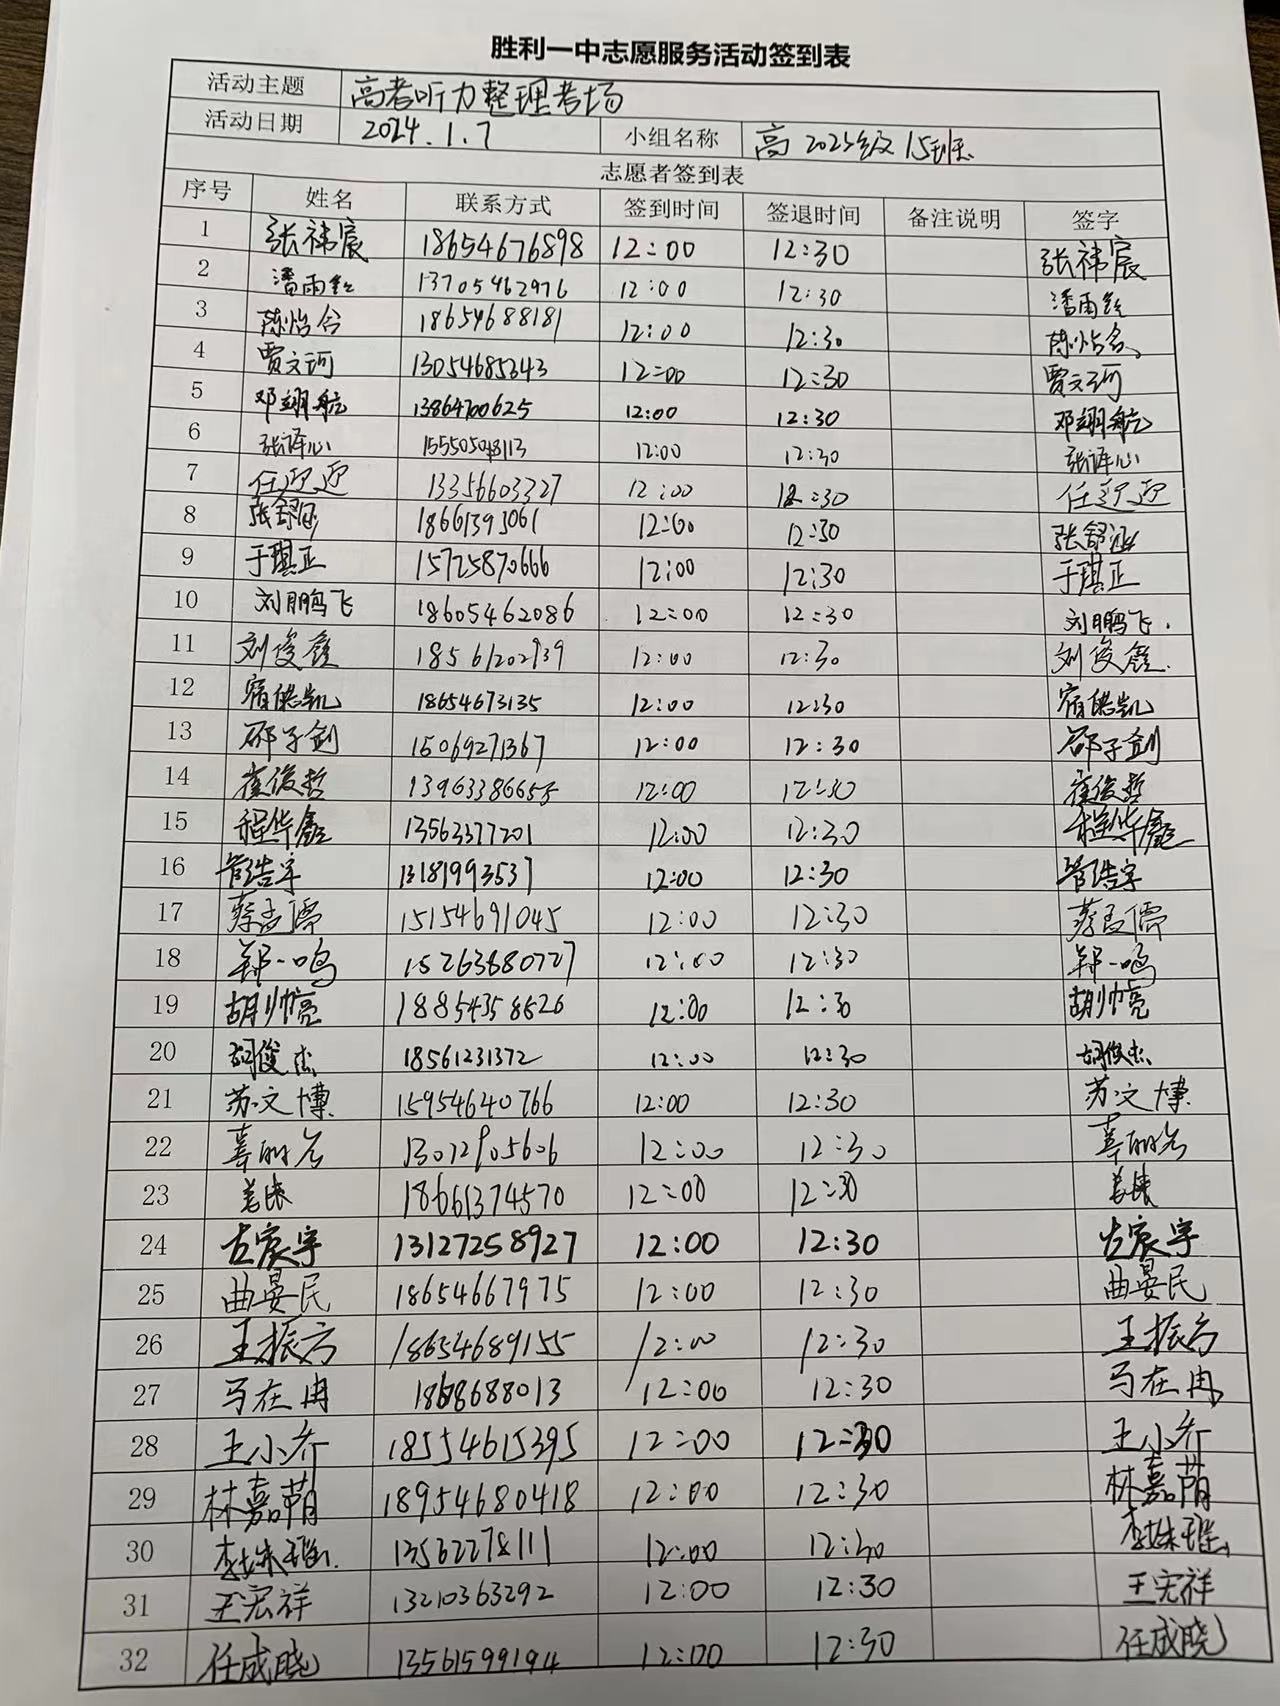 胜利一中志愿服务活动签到表
活动主题 高考听力整理考场
活动日期 2024.1.7 小组名称 高2023级15班
志愿者签到表
序号 姓名 联系方式 签到时间 签退时间 备注说明 签字
1 张祎宸 18654676898 12:00 12:30 张祎宸
2 潘雨 13705462976 12:00 12:30 潘雨
3 陈怡含 18654688181 12:00 12:30 陈怡含
4 贾文珂 13054685343 12:00 12:30 贾文珂
5 邓翊航 13864700625 12:00 12:30 邓翊航
6 张译心 12:00 12:30 张译心
7 任迎迎 13356603327 12:00 12:30 任迎迎
8 张舒涵 18661393061 12:00 12:30 张舒涵
9 于琪正 15725870666 12:00 12:30 于琪正
10 刘鹏飞 18605462086 12:00 12:30 刘鹏飞
11 刘俊鑫 18561202939 12:00 12:30 刘俊鑫
12 宿皓凯 18654673135 12:00 12:30 宿皓凯
13 邵子剑 15069271367 12:00 12:30 邵子剑
14 崔俊哲 13963386655 12:00 12:30 崔俊哲
15 程华鑫 13563377201 12:00 12:30 程华鑫
16 管浩宇 13181993537 12:00 12:30 管浩宇
17 蔡孟儒 15154691045 12:00 12:30 蔡孟儒
18 郑一鸣 15263880727 12:00 12:30 郑一鸣
19 胡帅亮 18854358626 12:00 12:30 胡帅亮
20 胡俊杰 18561231372 12:00 12:30 胡俊杰
21 苏文博 15954640766 12:00 12:30 苏文博
22 13012905606 12:00 12:30
23 18661374570 12:00 12:30
24 古宸宇 13127258927 12:00 12:30 古宸宇
25 曲晏民 18654667975 12:00 12:30 曲晏民
26 王振方 18654689155 12:00 12:30 王振方
27 马在冉 12:00 12:30 马在冉
28 王小乔 18554615395 12:00 12:30 王小乔
29 林嘉萌 18954680418 12:00 12:30 林嘉萌
30 李姝瑶 13562278111 12:00 12:30 李姝瑶
31 王宏祥 13210363292 12:00 12:30 王宏祥
32 任成晓 13561599194 12:00 12:30 任成晓